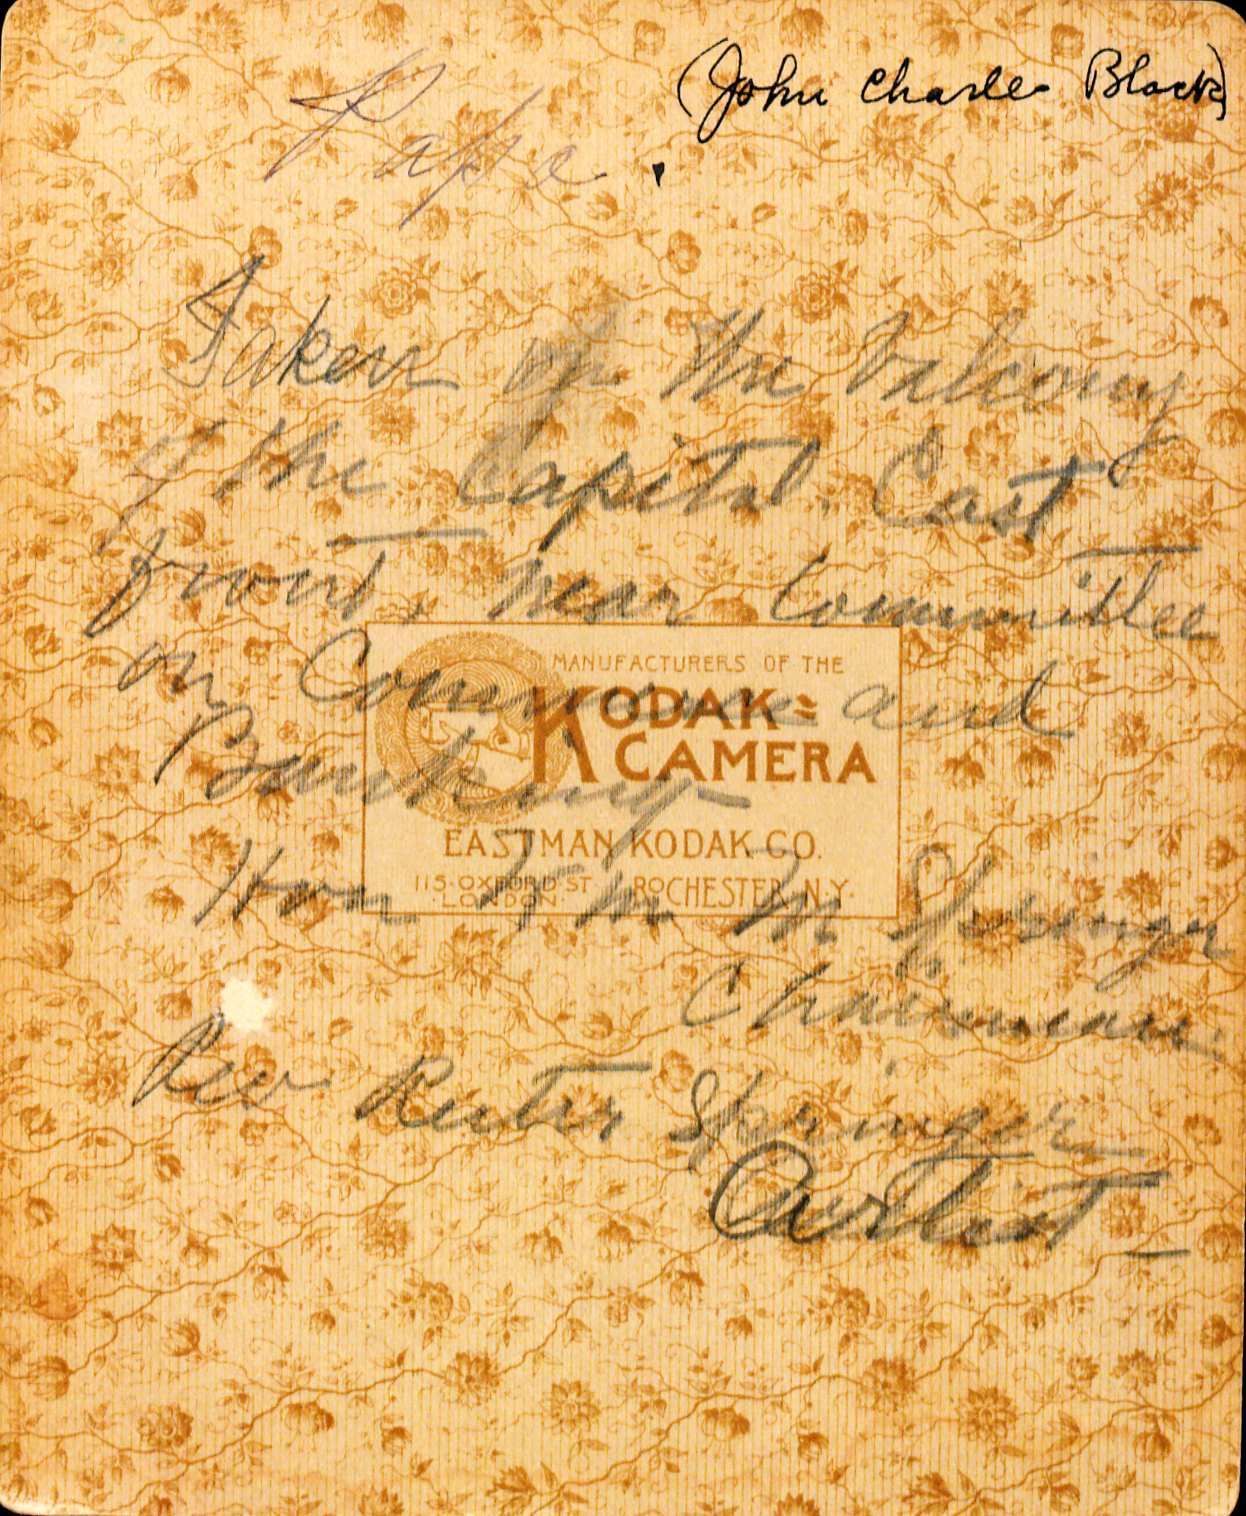 (John Charles Black)
Papa.
Taken of the balcony
of the Capitol East
front, near Committee
on Commerce and
Banking
Hon Wm M Springer
Chairman.
Rev Ruter Springer
Artist
MANUFACTURERS OF THE
KODAK
CAMERA
EASTMAN KODAK CO.
115 OXFORD ST. ROCHESTER, N.Y.
LONDON